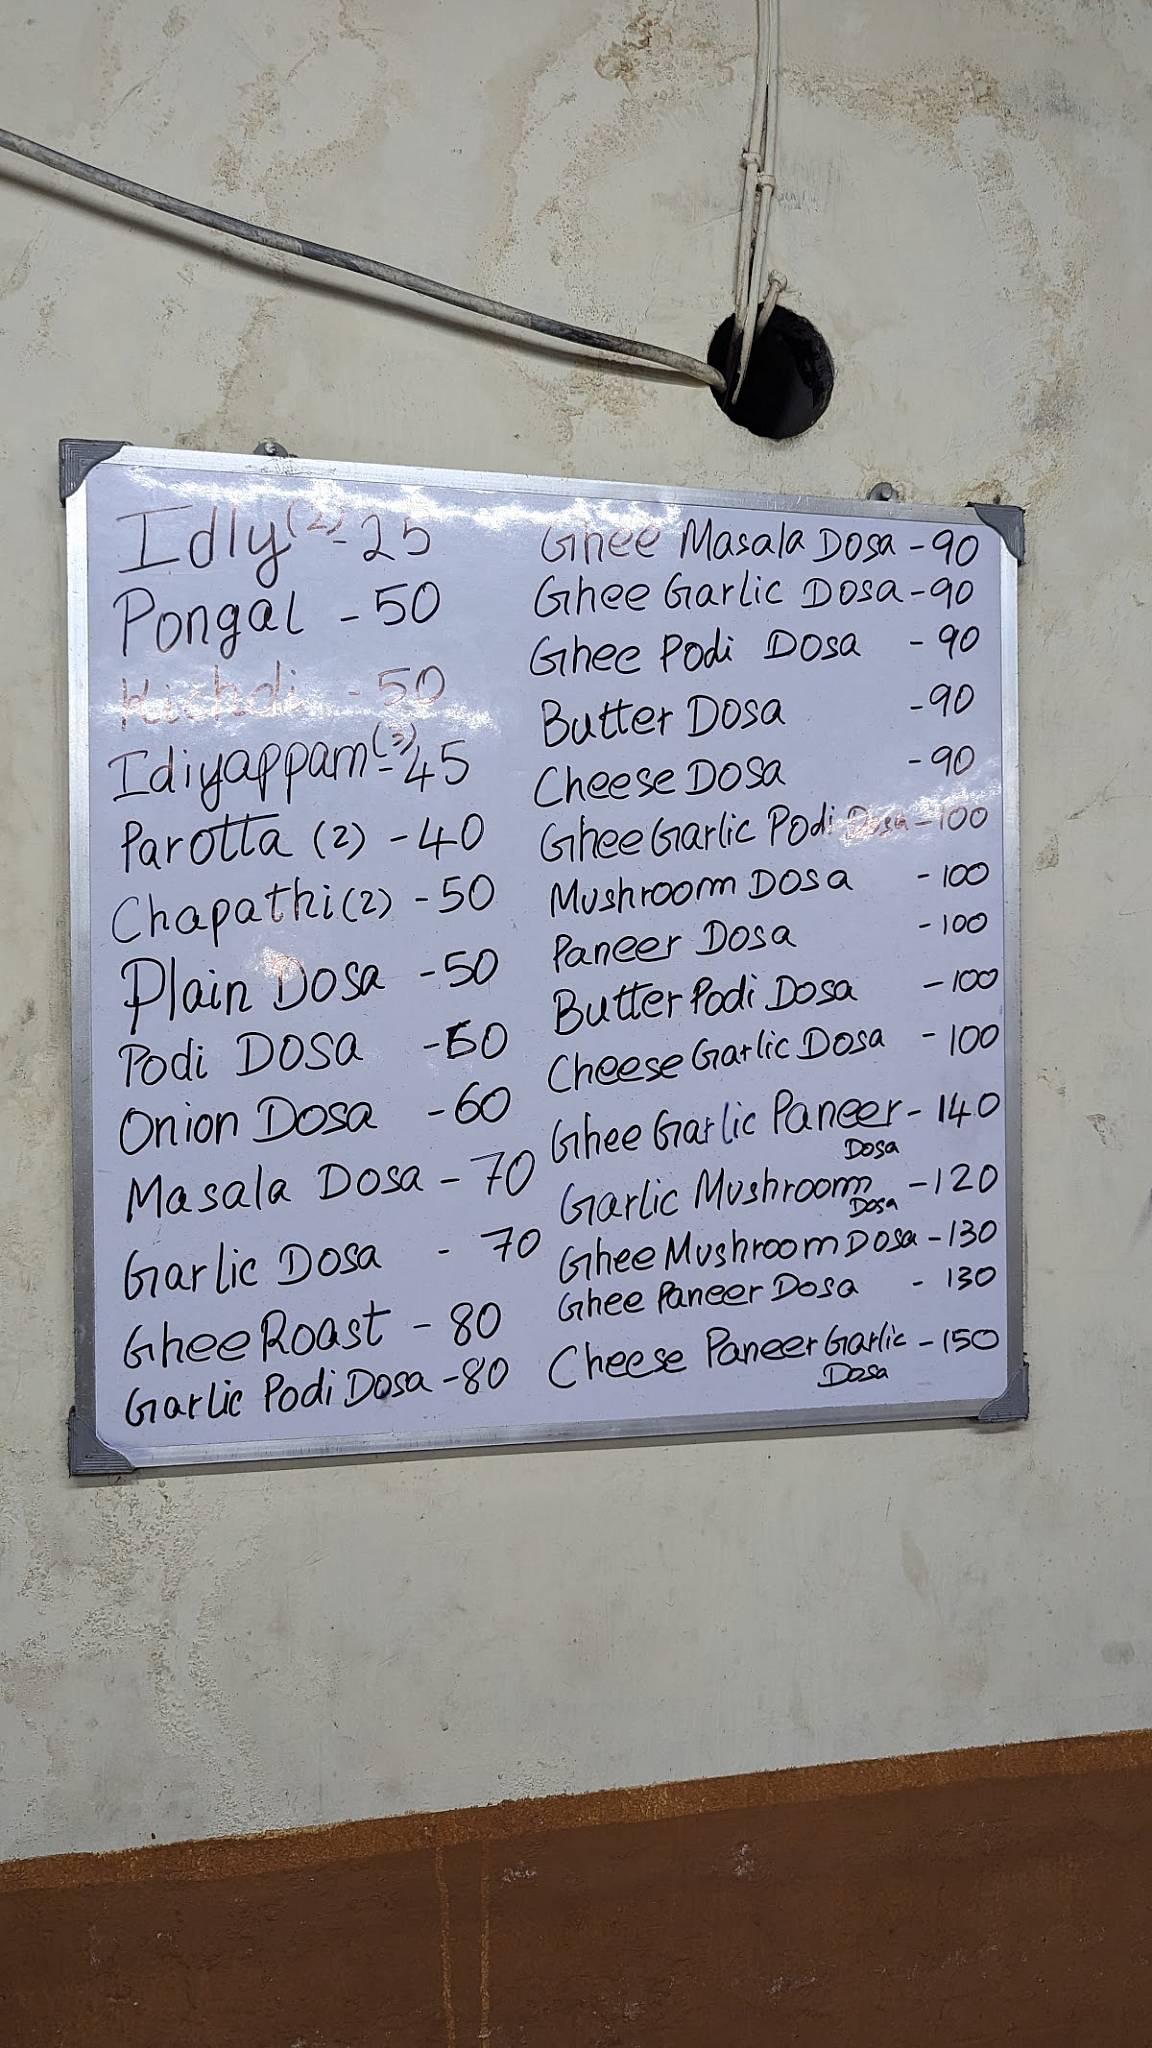 Idly (2) - 25
Pongal - 50
Kichdi - 50
Idiyappam (3) - 45
Parotta (2) - 40
Chapathi (2) - 50
Plain Dosa - 50
Podi Dosa - 60
Onion Dosa - 60
Masala Dosa - 70
Garlic Dosa - 70
Ghee Roast - 80
Garlic Podi Dosa - 80
Ghee Masala Dosa - 90
Ghee Garlic Dosa - 90
Ghee Podi Dosa - 90
Butter Dosa - 90
Cheese Dosa - 90
Ghee Garlic Podi Dosa - 100
Mushroom Dosa - 100
Paneer Dosa - 100
Butter Podi Dosa - 100
Cheese Garlic Dosa - 100
Ghee Garlic Paneer - 140
Dosa
Garlic Mushroom - 120
Dosa
Ghee Mushroom Dosa - 130
Ghee Paneer Dosa - 130
Cheese Paneer Garlic - 150
Dosa